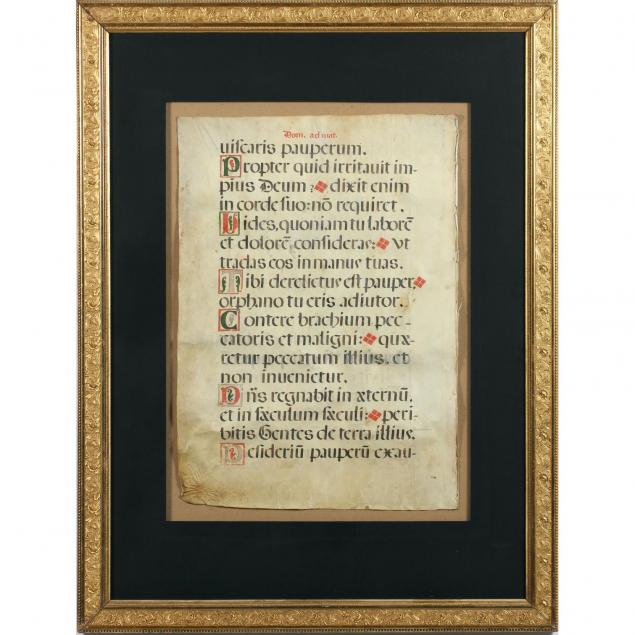 Dom. ad mat.
uiscaris pauperum.
Propter quid irritauit im-
pius Deum? dixit enim
in corde suo: nō requiret.
Uides, quoniam tu laborē
et dolorē consideras: ut
tradas eos in manus tuas.
Tibi derelictus est pauper,
orphano tu eris adiutor.
Contere brachium pec-
catoris et maligni: quæ-
retur peccatum illius, et
non inuenietur.
Dñs regnabit in æternū,
et in sæculum sæculi: peri-
bitis Gentes de terra illius.
Desideriū pauperū exau-